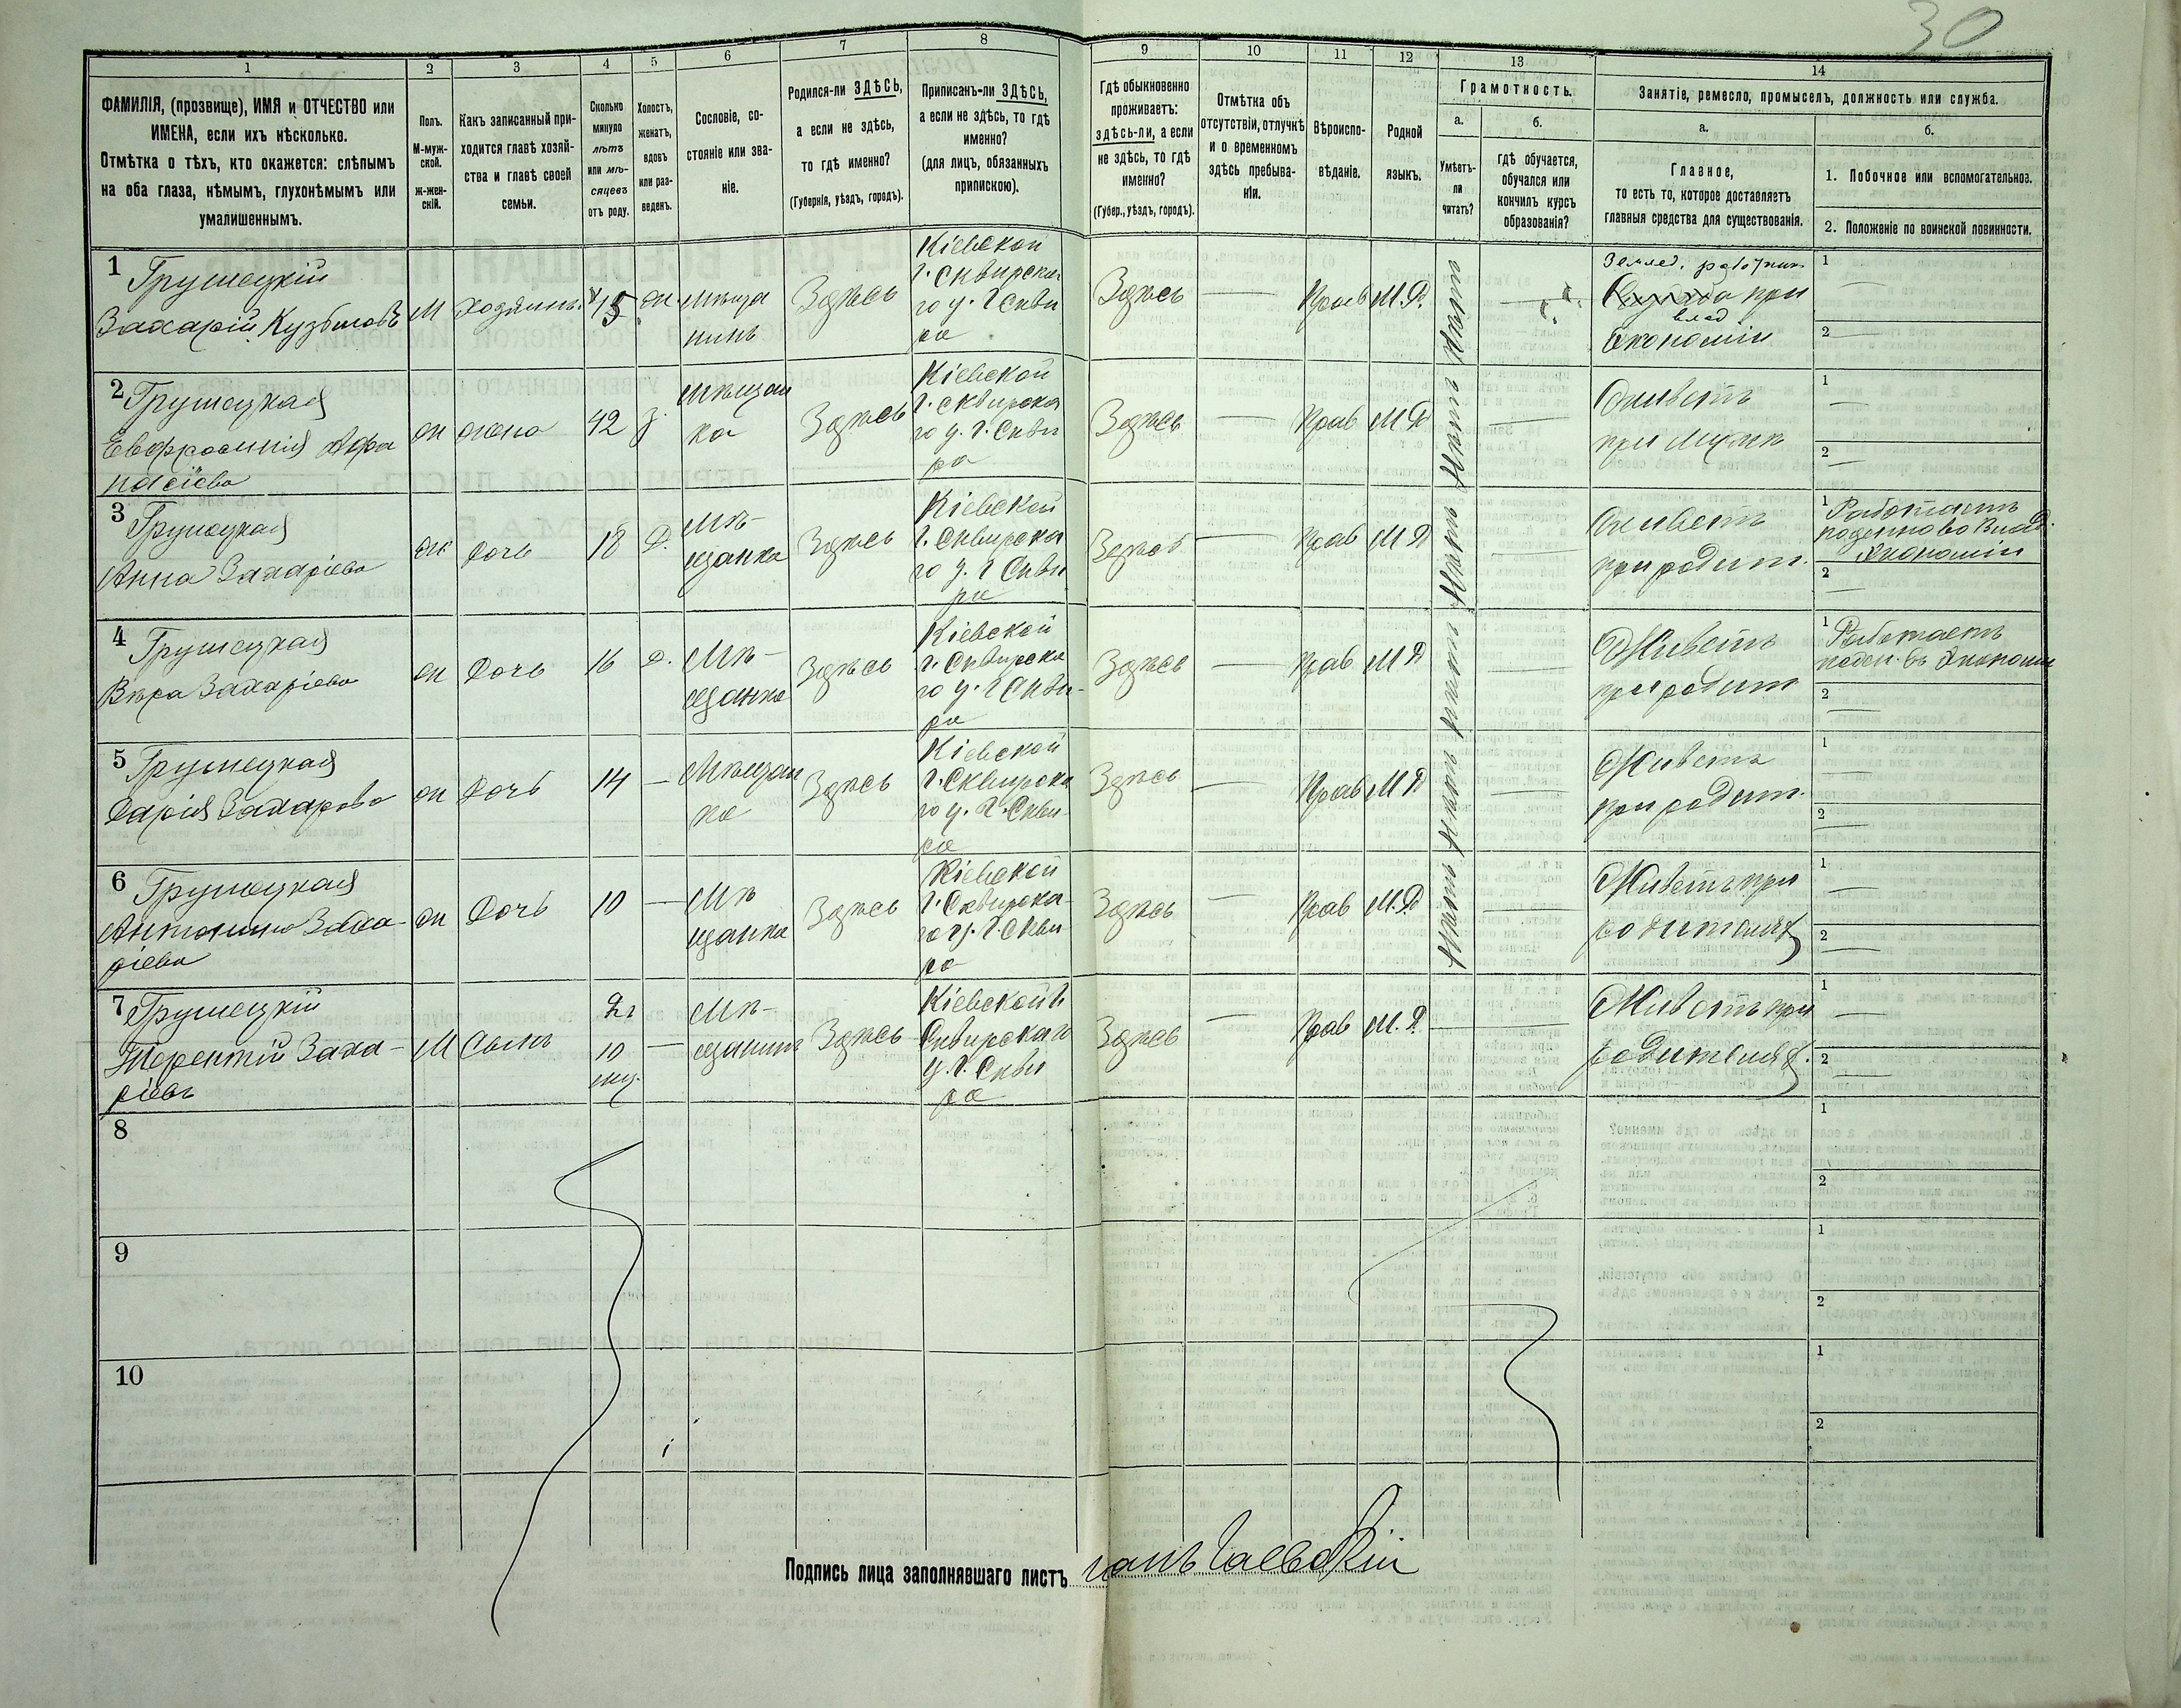 30
1 2 3 4 5 6 7 8 9 10 11 12 13 14
ФАМИЛІЯ, (прозвище), ИМЯ и ОТЧЕСТВО или
ИМЕНА, если ихъ нѣсколько.
Отмѣтка о тѣхъ, кто окажется: слѣпымъ
на оба глаза, нѣмымъ, глухонѣмымъ или
умалишеннымъ.
Полъ.
М-муж-
ской.
ж-жен-
скій.
Какъ записанный при-
ходится главѣ хозяй-
ства и главѣ своей
семьи.
Сколько
минуло
лѣтъ
или мѣ-
сяцевъ
отъ роду.
Холостъ,
женатъ,
вдовъ
или раз-
веденъ.
Сословіе, со-
стояніе или зва-
ніе.
Родился-ли ЗДѢСЬ,
а если не здѣсь,
то гдѣ именно?
(Губернія, уѣздъ, городъ).
Приписанъ-ли ЗДѢСЬ,
а если не здѣсь, то гдѣ
именно?
(для лицъ, обязанныхъ
припискою).
Гдѣ обыкновенно
проживаетъ:
здѣсь-ли, а если
не здѣсь, то гдѣ
именно?
(Губер., уѣздъ, городъ).
Отмѣтка объ
отсутствіи, отлучкѣ
и о временномъ
здѣсь пребыва-
ніи.
Вѣроиспо-
вѣданіе.
Родной
языкъ.
Грамотность.
а.
Умѣетъ-
ли
читать?
б.
гдѣ обучается,
обучался или
кончилъ курсъ
образованія?
Занятіе, ремесло, промыселъ, должность или служба.
а.
Главное,
то есть то, которое доставляетъ
главныя средства для существованія.
б.
1. Побочное или вспомогательное.
2. Положеніе по воинской повинности.
1
Грушецкій
Захарій Кузьмовъ
М
хозяинъ
45
ж
мѣща
нинъ
Здѣсь
Кіевской
г. Сквирска
го у. г Скви
ра
Здѣсь
—
Прав
М.Р.
Нѣтъ
—
Землед. работник
при
влад
Економіи
1
2 —
2
Грушецкая
Евфросинія Афа
насіева
ж
жена
42
з.
мѣщан
ка
Здѣсь
Кіевской
г. Сквирска
го у. г. Скви
ра
Здѣсь
—
Прав
М Р
Нѣтъ
—
Живетъ
при мужѣ
1 —
2 —
3
Грушецкая
Анна Захаріева
ж
Дочь
18
Д.
мѣ-
щанка
Здѣсь
Кіевской
г. Сквирска
го у. г Скви
ра
Здѣсь
—
Прав
М Р
Нѣтъ
—
Живетъ
при родит.
1 Работаетъ
поденно во влад.
Економіи
2 —
4
Грушецкая
Вѣра Захаріева
ж
Дочь
16
Д.
Мѣ-
щанка
Здѣсь
Кіевской
г. Сквирска
го у. г Скви-
ра
Здѣсь
—
Прав
М Р
Нѣтъ
—
Живетъ
при родит
1 Работаетъ
поден. въ Економіи
2 —
5
Грушецкая
Дарія Захарова
ж
Дочь
14
—
Мѣщан
ка
Здѣсь
Кіевской
г. Сквирска
го у. г. Скви-
ра
Здѣсь
—
Прав
М Р
Нѣтъ
—
Живетъ
при родит.
1 —
2 —
6
Грушецкая
Антонина Заха-
ріева
ж
Дочь
10
—
Мѣ
щанка
Здѣсь
Кіевской
г. Сквирска-
го у. г. Скви
ра
Здѣсь
—
Прав
М.Р.
Нѣтъ
—
Живетъ при
родителях
1 —
2 —
7
Грушецкій
Терентій Заха-
ріевъ
М
Сынъ
2 г
10
мц.
—
Мѣ-
щанинъ
Здѣсь
Кіевской г.
Сквирскаго
у. г. Скви
ра
Здѣсь
—
Прав
М. Р.
—
Живетъ при
родителях.
1 —
2 —
8
1
2
9
1
2
10
1
2
Подпись лица заполнявшаго листъ